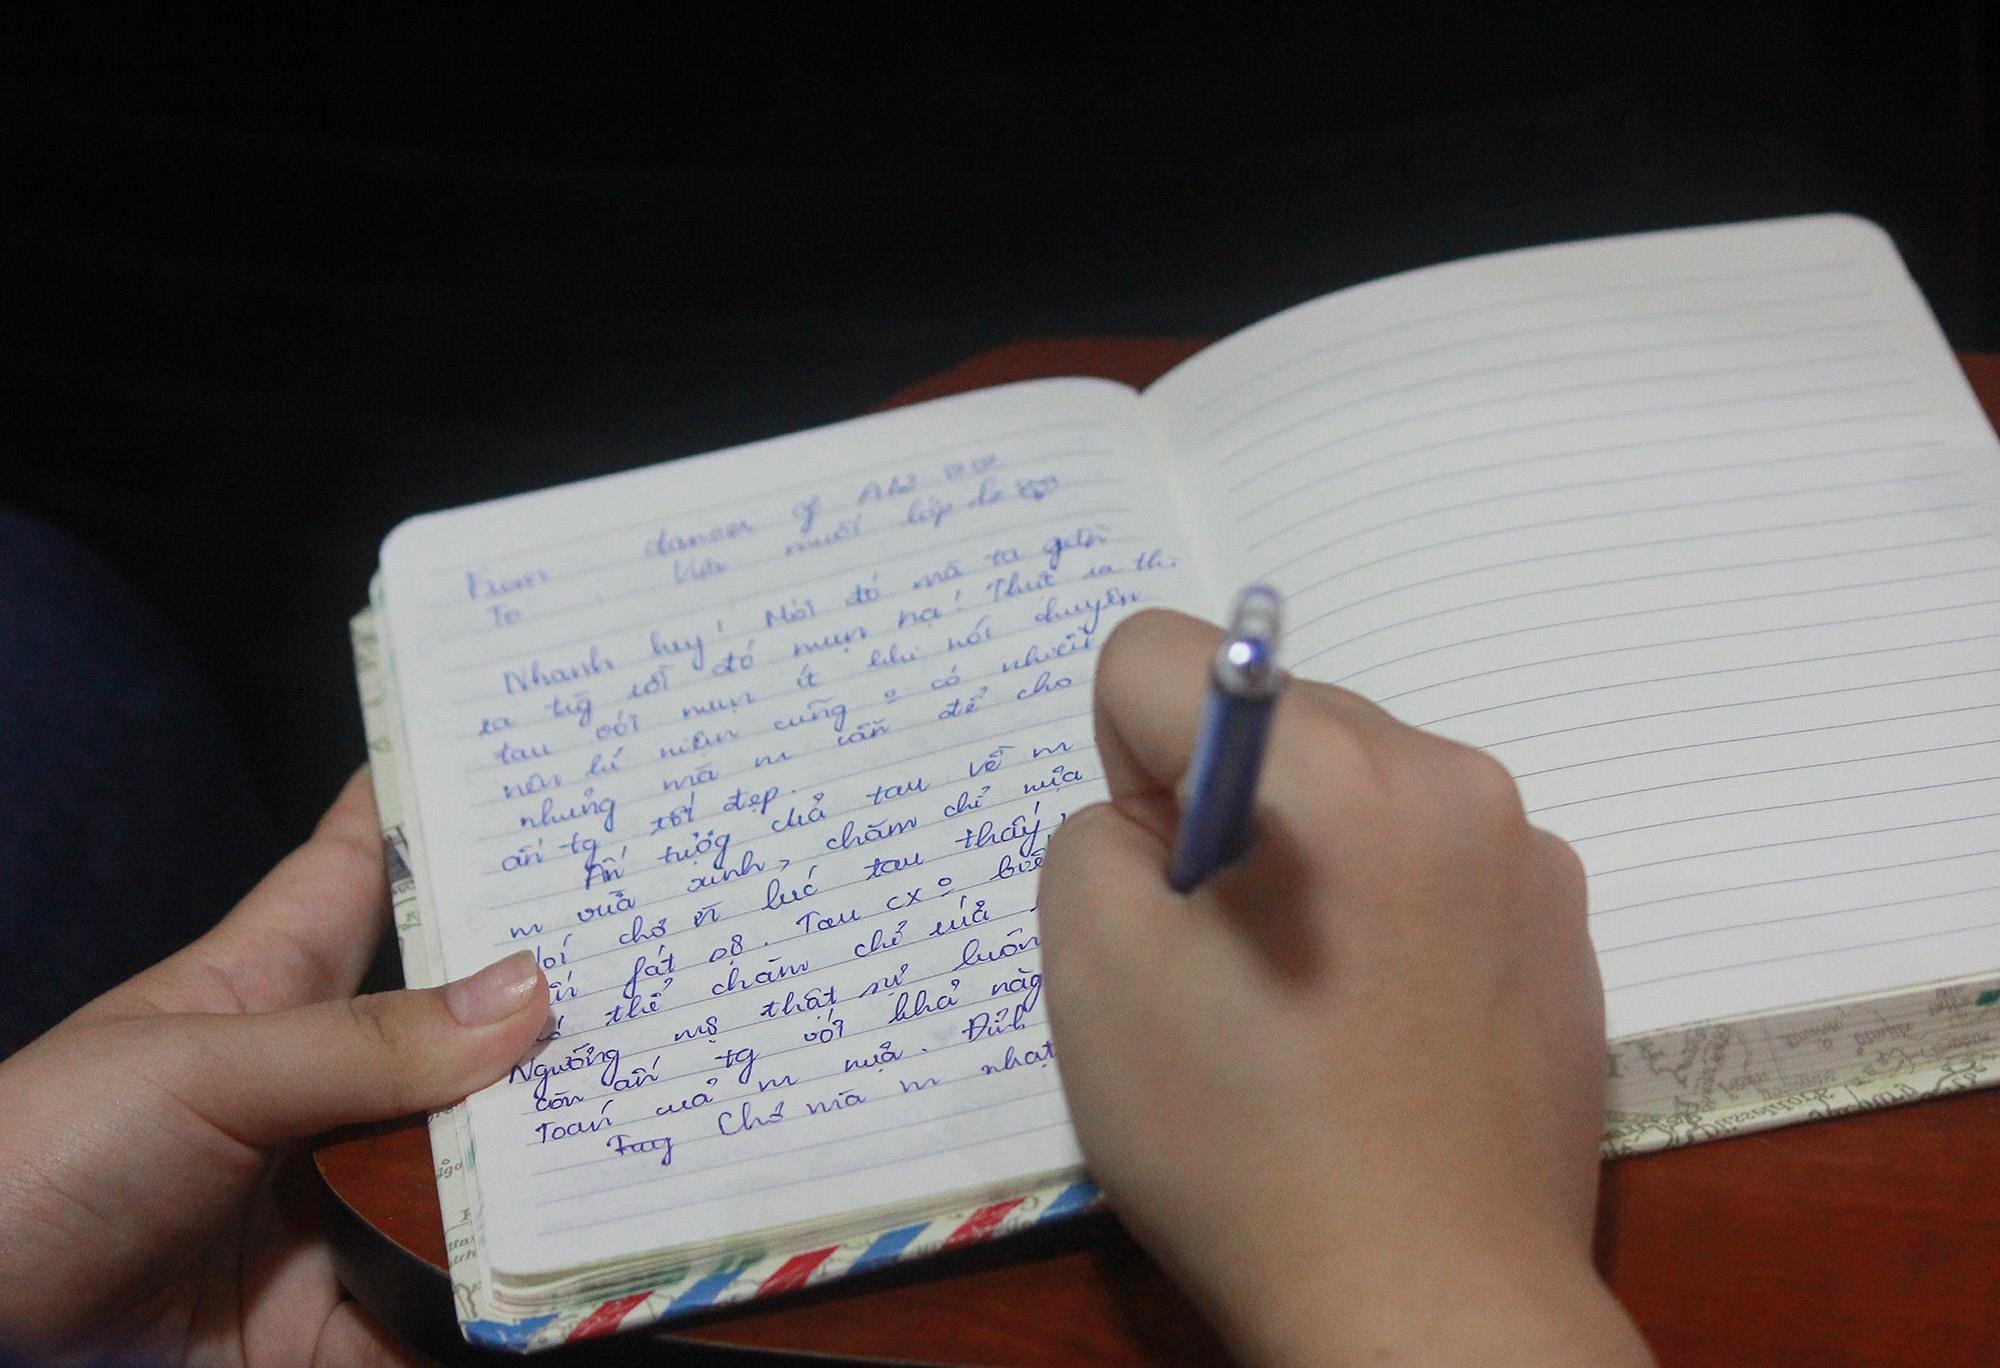 From dancer of A12
To Vua muối lớp
Nhanh hey! Mới đó mà ta gần
ra trg rồi đó mun hạ! Thực ra thì
tau với mun ít khi nói chuyện
nên kỉ niệm cũng º có nhiều
nhưng mà m vẫn để cho
ấn tg tốt đẹp.
Ấn tượg củả tau về m
m vừa xinh, chăm chỉ nựa
chớ lúc tau thấy,
fát sợ. Tau cx º
thể chăm chỉ
Ngưỡng mộ thật sự luôn
còn ấn tg với khả năg
Toán cuả m nựa. Đỉnh
Tuy Chớ mà m nhạt